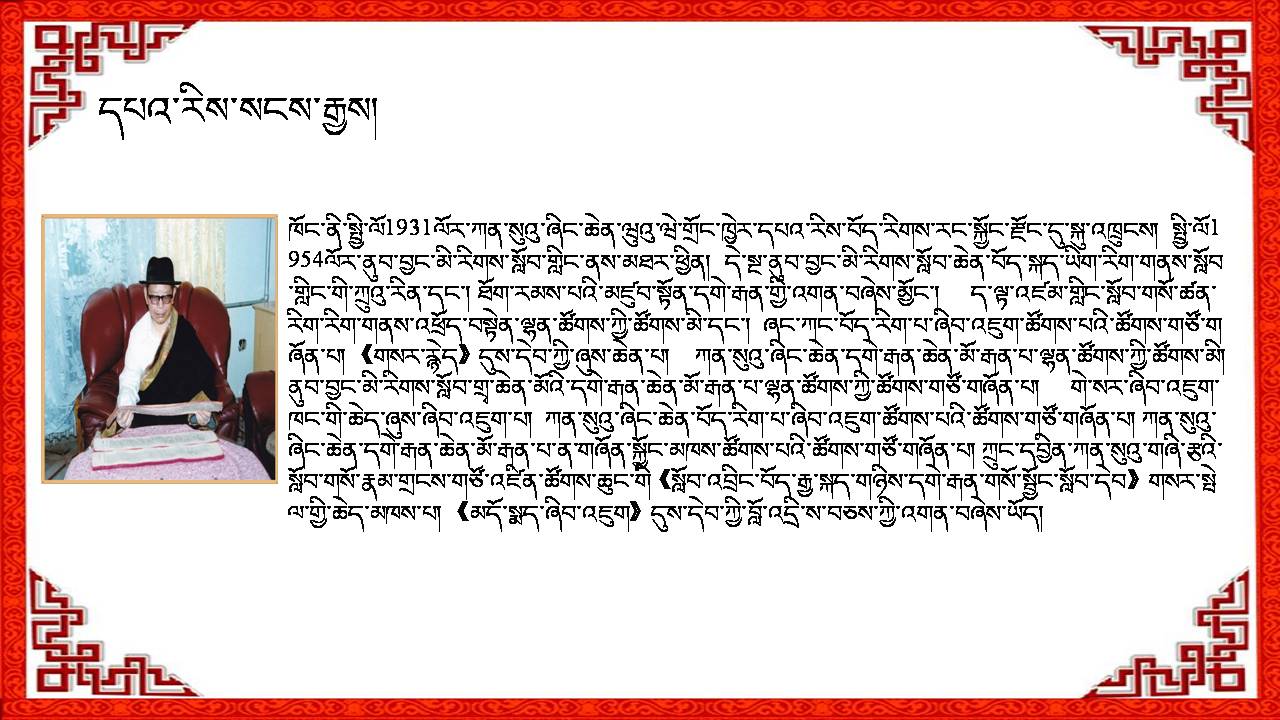 དཔའ་རིས་སངས་རྒྱས།
ཁོང་ནི་སྤྱི་ལོ1931ལོར་ཀན་སུའུ་ཞིང་ཆེན་ཝུའུ་ཝེ་གྲོང་ཁྱེར་དཔའ་རིས་བོད་རིགས་རང་སྐྱོང་རྫོང་དུ་སྐུ་འཁྲུངས། སྤྱི་ལོ1
954ལོར་ནུབ་བྱང་མི་རིགས་སློབ་གླིང་ནས་མཐར་ཕྱིན། དེ་སྔ་ནུབ་བྱང་མི་རིགས་སློབ་ཆེན་བོད་སྐད་ཡིག་རིག་གནས་སློབ
་གླིང་གི་ཀྲུའུ་རིན་དང་། ཐོག་རམས་པའི་མཛུབ་སྟོན་དགེ་རྒན་གྱི་འགན་བཞེས་མྱོང་། ད་ལྟ་འཛམ་གླིང་སློབ་གསོ་ཚན་
རིག་རིག་གནས་འཕྲོད་བསྟེན་ལྷན་ཚོགས་ཀྱི་ཚོགས་མི་དང་། ཞང་ཀང་བོད་རིག་པ་ཞིབ་འཇུག་ཚོགས་པའི་ཚོགས་གཙོ་ག
ཞོན་པ། 《གསར་རྙེད》དུས་དེབ་ཀྱི་ཞུས་ཆེན་པ། ཀན་སུའུ་ཞིང་ཆེན་དགེ་རྒན་ཆེན་མོ་རྒན་པ་ལྷན་ཚོགས་ཀྱི་ཚོགས་མི།
ནུབ་བྱང་མི་རིགས་སློབ་གྲྭ་ཆེན་མོའི་དགེ་རྒན་ཆེན་མོ་རྒན་པ་ལྷན་ཚོགས་ཀྱི་ཚོགས་གཙོ་གཞོན་པ། གེ་སར་ཞིབ་འཇུག་
ཁང་གི་ཆེད་ཞུས་ཞིབ་འཇུག་པ། ཀན་སུའུ་ཞིང་ཆེན་བོད་རིག་པ་ཞིབ་འཇུག་ཚོགས་པའི་ཚོགས་གཙོ་གཞོན་པ། ཀན་སུའུ་
ཞིང་ཆེན་དགེ་རྒན་ཆེན་མོ་རྒན་པ་ན་གཞོན་སྐྱོང་མཁས་ཚོགས་པའི་ཚོགས་གཙོ་གཞོན་པ། ཀྲུང་དབྱིན་ཀན་སུའུ་གཞི་རྩའི་
སློབ་གསོ་རྣམ་གྲངས་གཙོ་འཛིན་ཚོགས་ཆུང་གི《སློབ་འབྲིང་བོད་རྒྱ་སྐད་གཉིས་དགེ་རྒན་གསོ་སྦྱོང་སློབ་དེབ》གསར་སྤེ
ལ་གྱི་ཆེད་མཁས་པ། 《མདོ་སྨད་ཞིབ་འཇུག》དུས་དེབ་ཀྱི་བློ་འདྲི་ས་བཅས་ཀྱི་འགན་བཞེས་ཡོད།